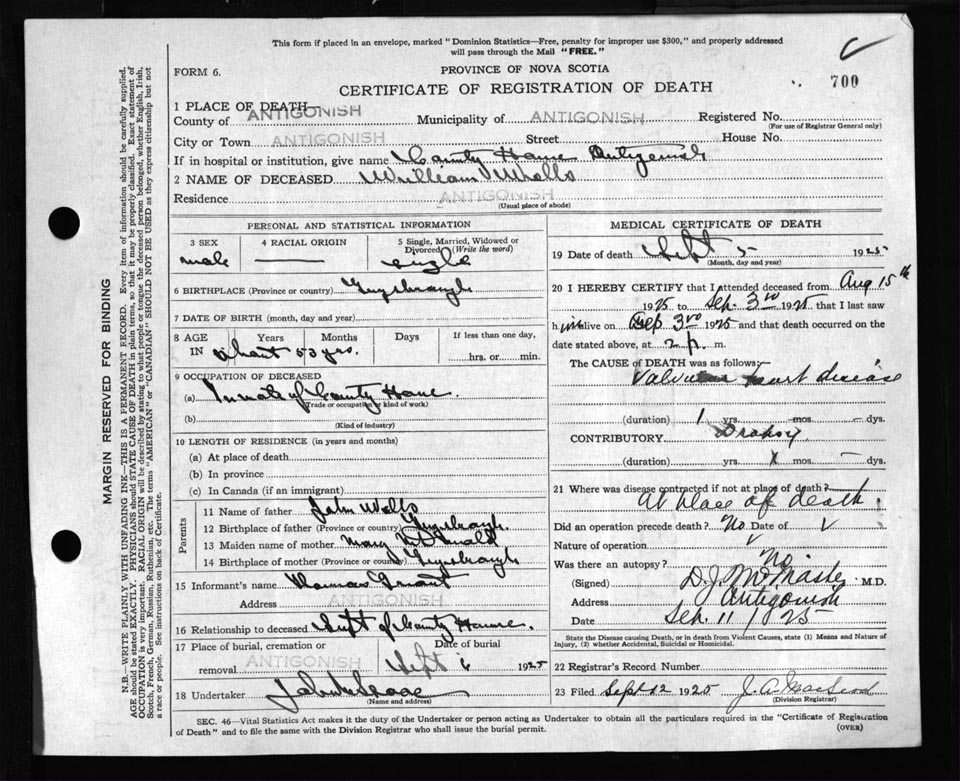 This form if placed in an envelope, marked "Dominion Statistics—Free, penalty for improper use $300," and properly addressed
will pass through the Mail "FREE."
FORM 6.
PROVINCE OF NOVA SCOTIA
CERTIFICATE OF REGISTRATION OF DEATH
700
1 PLACE OF DEATH—
County of ANTIGONISH Municipality of ANTIGONISH Registered No.
(For use of Registrar General only)
City or Town ANTIGONISH Street House No.
If in hospital or institution, give name County Home Antigonish
2 NAME OF DECEASED William Walls
Residence ANTIGONISH
(Usual place of abode)
PERSONAL AND STATISTICAL INFORMATION
3 SEX 4 RACIAL ORIGIN 5 Single, Married, Widowed or
Divorced (Write the word)
male single
6 BIRTHPLACE (Province or country) Guysborough
7 DATE OF BIRTH (month, day and year)
8 AGE Years Months Days If less than one day,
IN about 53 yrs. hrs. or min.
9 OCCUPATION OF DECEASED
(a) Inmate of County Home.
(Trade or occupation or kind of work)
(b)
(Kind of industry)
10 LENGTH OF RESIDENCE (in years and months)
(a) At place of death
(b) In province
(c) In Canada (if an immigrant)
Parents
11 Name of father John Walls
12 Birthplace of father (Province or country) Guysborough.
13 Maiden name of mother Mary McDonald
14 Birthplace of mother (Province or country) Guysborough
15 Informant's name Thomas Grant
Address ANTIGONISH
16 Relationship to deceased Supt of County Home.
17 Place of burial, cremation or Date of burial
removal ANTIGONISH Sept 6 1925
18 Undertaker
(Name and address)
MEDICAL CERTIFICATE OF DEATH
19 Date of death Sept 5 1925
(Month, day and year)
20 I HEREBY CERTIFY that I attended deceased from Aug 15th
1925 to Sep. 3rd 1925 that I last saw
h im alive on Sep 3rd 1925 and that death occurred on the
date stated above, at 2 p. m.
The CAUSE OF DEATH was as follows:—
heart disease
(duration) 1 yrs. mos. dys.
CONTRIBUTORY Dropsy
(duration) yrs. mos. dys.
21 Where was disease contracted if not at place of death?
At place of death.
Did an operation precede death? No Date of
Nature of operation
Was there an autopsy? No
(Signed) D.J. McMaster M.D.
Address Antigonish
Date Sep. 11 / 25
State the Disease causing Death, or in death from Violent Causes, state (1) Means and Nature of
Injury, (2) whether Accidental, Suicidal or Homicidal.
22 Registrar's Record Number
23 Filed Sept 12 1925 J. A. MacLeod
(Division Registrar)
SEC. 46—Vital Statistics Act makes it the duty of the Undertaker or person acting as Undertaker to obtain all the particulars required in the "Certificate of Registration
of Death" and to file the same with the Division Registrar who shall issue the burial permit.
(OVER)
MARGIN RESERVED FOR BINDING
N.B.—WRITE PLAINLY WITH UNFADING INK—THIS IS A PERMANENT RECORD. Every item of information should be carefully supplied.
AGE should be stated EXACTLY. PHYSICIANS should STATE CAUSE OF DEATH in plain terms, so that it may be properly classified. Exact statement of
OCCUPATION is very important. RACIAL ORIGIN will be described by stating to what people or tongue the deceased person belonged, whether English, Irish,
Scotch, French, German, Russian, Ruthenian, etc. The terms "AMERICAN" or "CANADIAN" SHOULD NOT BE USED as they express citizenship but not
a race or people. See instructions on back of Certificate.